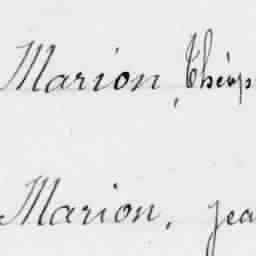 Marion, Théop
Marion, Jea